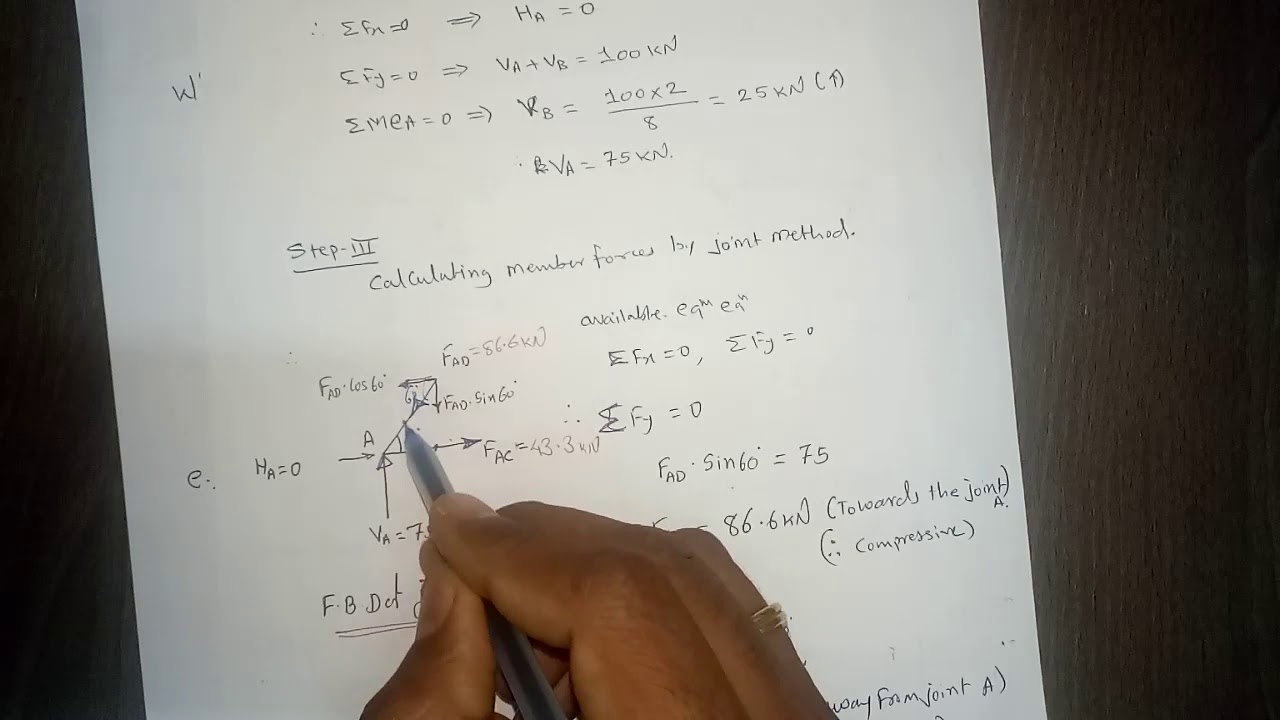 ∴ ΣFx=0 ⟹ HA = 0
ΣFy=0 ⟹ VA+VB = 100 KN
W'
ΣMeA=0 ⟹ VB = 100×2 / 8 = 25 KN (↑)
VA = 75 KN.
Step-III
Calculating member forces by joint method.
available. eqm eqn
ΣFx=0, ΣFy=0
FAD=86.6KN
FAD·cos60°
60°
FAD·sin60°
∴ ΣFy=0
A
FAC=43.3KN
e.
HA=0
FAD·sin60°=75
= 86.6KN (Towards the joint A.)
(∴ compressive)
VA=75
F.B.D of
from joint A)